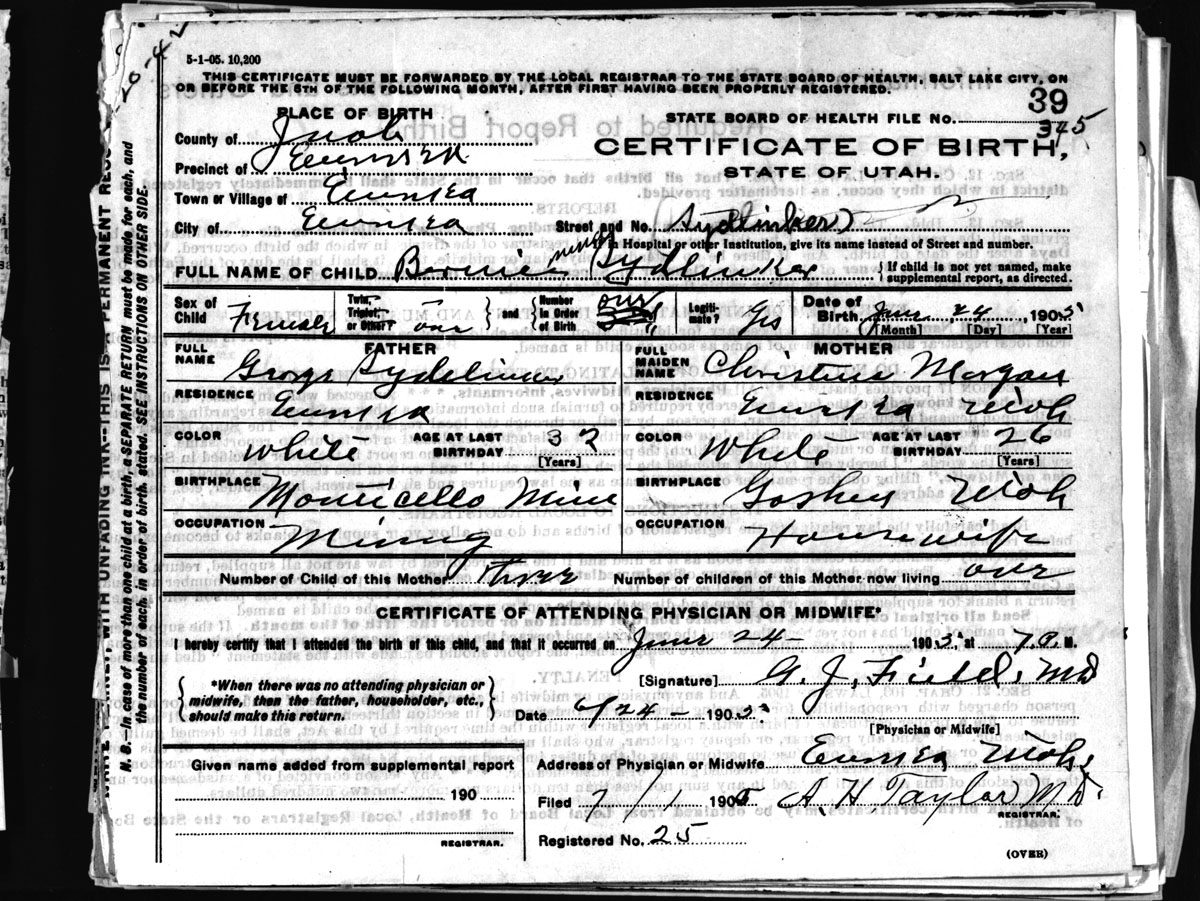 5-1-05. 10,200
THIS CERTIFICATE MUST BE FORWARDED BY THE LOCAL REGISTRAR TO THE STATE BOARD OF HEALTH, SALT LAKE CITY, ON
OR BEFORE THE 5TH OF THE FOLLOWING MONTH, AFTER FIRST HAVING BEEN PROPERLY REGISTERED.
39
PLACE OF BIRTH
STATE BOARD OF HEALTH FILE NO. 345
County of Juab
CERTIFICATE OF BIRTH,
Precinct of Eureka
STATE OF UTAH.
Town or Village of Eureka
City of Eureka Street and No. Sydlinker
in Hospital or other Institution, give its name instead of Street and number.
FULL NAME OF CHILD Bernice Sydlinker
If child is not yet named, make
supplemental report, as directed.
Sex of Child Female
Twin, Triplet, or Other? one
and
Number in Order of Birth one
Legitimate? Yes
Date of Birth June 24 1905
[Month] [Day] [Year]
FATHER
FULL NAME George
RESIDENCE Eureka
COLOR White AGE AT LAST BIRTHDAY 32
[Years]
BIRTHPLACE Monticello Minn
OCCUPATION Mining
MOTHER
FULL MAIDEN NAME Christina Morgan
RESIDENCE Eureka Utah
COLOR White AGE AT LAST BIRTHDAY 26
[Years]
BIRTHPLACE Goshen Utah
OCCUPATION Housewife
Number of Child of this Mother three Number of children of this Mother now living one
CERTIFICATE OF ATTENDING PHYSICIAN OR MIDWIFE*
I hereby certify that I attended the birth of this child, and that it occurred on June 24 - 1905, at 7 M.
*When there was no attending physician or
midwife, then the father, householder, etc.,
should make this return.
[Signature] G. J. Field, MD
Date 6/24 - 1905
[Physician or Midwife]
Address of Physician or Midwife Eureka Utah
Given name added from supplemental report
190
REGISTRAR.
Filed 7/1 1905 A. H. Taylor MD.
REGISTRAR.
Registered No. 25
(OVER)
WITH UNFADING INK--THIS IS A PERMANENT
N. B.--In case of more than one child at a birth, a SEPARATE RETURN must be made for each, and
the number of each, in order of birth, stated. SEE INSTRUCTIONS ON OTHER SIDE.